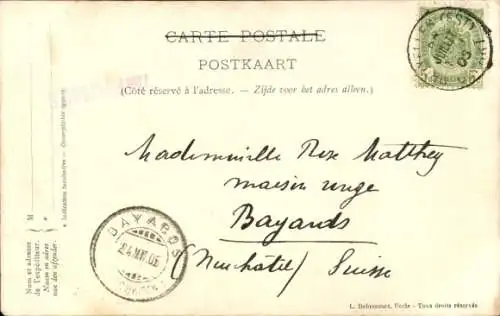 CARTE POSTALE
POSTKAART
(Côté réservé à l'adresse. – Zijde voor het adres alleen.)
Mademoiselle Rose Matthey
maison rouge
Bayards
(Neuchâtel) Suisse
BAYARDS
Nom et adresse
de l'expéditeur.
Naam en adres
van den afzender.
M
L. Delmouzet, Ecole – Tous droits réservés